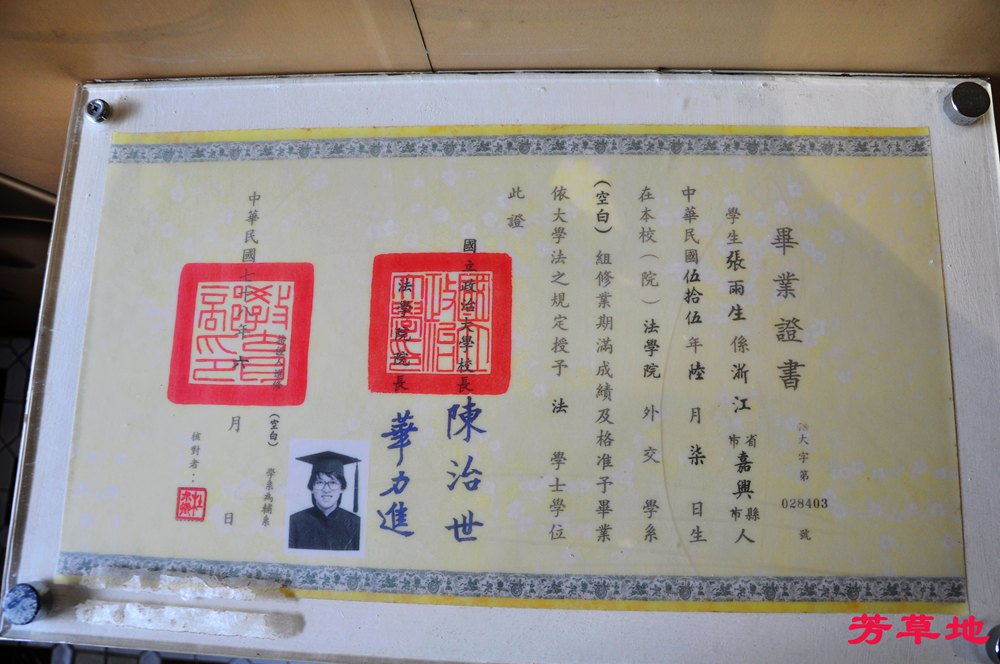 畢業證書
78大字第028403號
學生張雨生係浙江省市嘉興縣市人
中華民國伍拾伍年陸月柒日生
在本校（院）法學院外交學系
（空白）組修業期滿成績及格准予畢業
依大學法之規定授予法學士學位
此證
國立政治大學校長陳治世
法學院院長華力進
（空白）學系為輔系
中華民國七十八年六月日
核對者：
芳草地